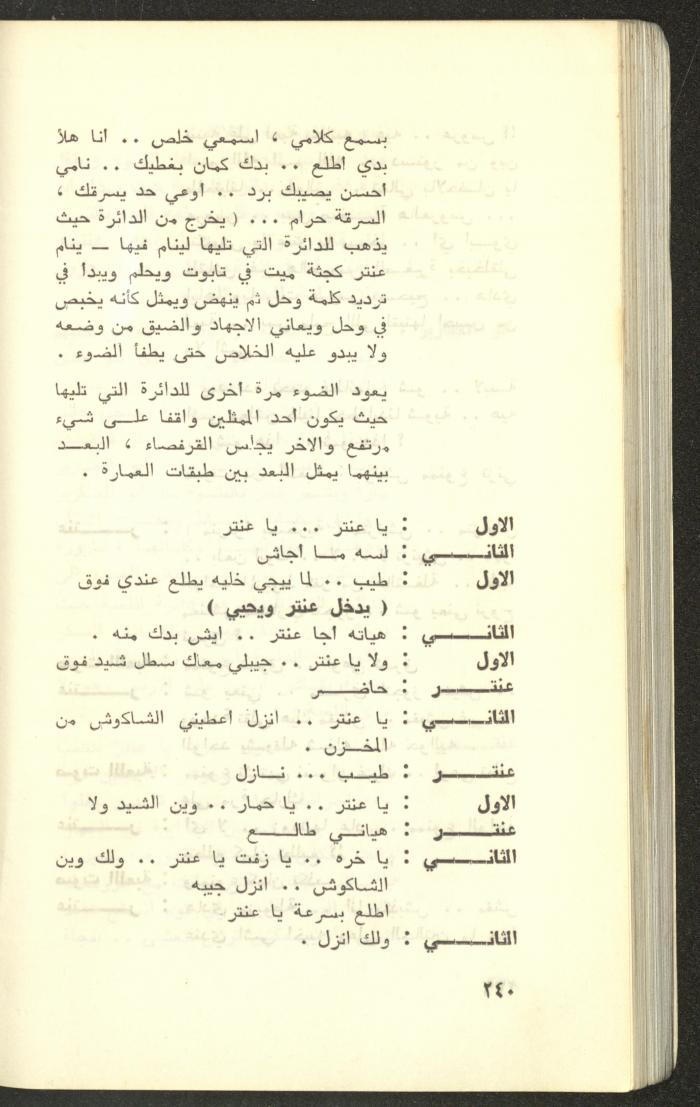 بسمع كلامي ، اسمعي خلص .. أنا هلأ
بدي اطلع .. بدك كمان بغطيك .. نامي
أحسن يصيبك برد .. أوعي حد يسرقك ،
السرقة حرام ... ( يخرج من الدائرة حيث
يذهب للدائرة التي تليها لينام فيها — ينام
عنتر كجثة ميت في تابوت ويحلم ويبدأ في
ترديد كلمة وحل ثم ينهض ويمثل كأنه يخبص
في وحل ويعاني الاجهاد والضيق من وضعه
ولا يبدو عليه الخلاص حتى يطفأ الضوء .
يعود الضوء مرة أخرى للدائرة التي تليها
حيث يكون أحد الممثلين واقفا على شيء
مرتفع والاخر يجلس القرفصاء ، البعد
بينهما يمثل البعد بين طبقات العمارة .
الاول : يا عنتر ... يا عنتر
الثاني : لسه ما أجاش
الاول : طيب .. لما ييجي خليه يطلع عندي فوق
( يدخل عنتر ويحيي )
الثاني : هياته اجا عنتر .. ايش بدك منه .
الاول : ولا يا عنتر .. جيبلي معاك سطل شيد فوق
عنتر : حاضر
الثاني : يا عنتر .. انزل أعطيني الشاكوش من
المخزن .
عنتر : طيب ... نازل
الاول : يا عنتر .. يا حمار .. وين الشيد ولا
عنتر : هياني طالع
الثاني : يا خره .. يا زفت يا عنتر .. ولك وين
الشاكوش .. انزل جيبه
اطلع بسرعة يا عنتر
الثاني : ولك انزل .
٢٤٠